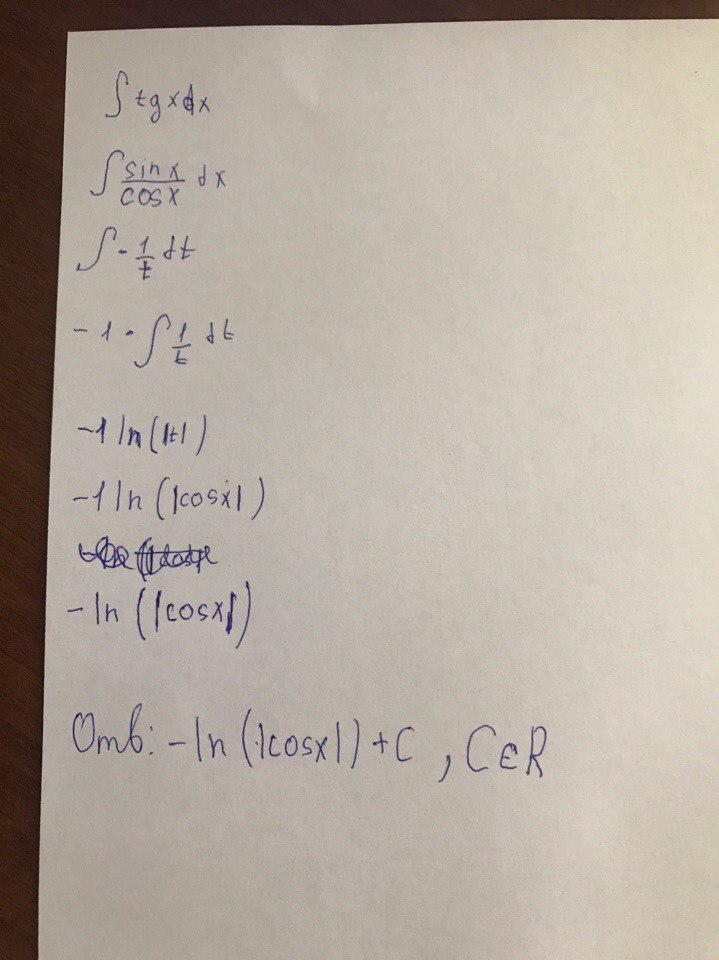 ∫ tg x dx
∫ sin x / cos x dx
∫ - 1/t dt
- 1 · ∫ 1/t dt
-1 ln (|t|)
-1 ln (|cos x|)
- ln (|cos x|)
Отв: - ln (|cos x|) + C , C ∈ R